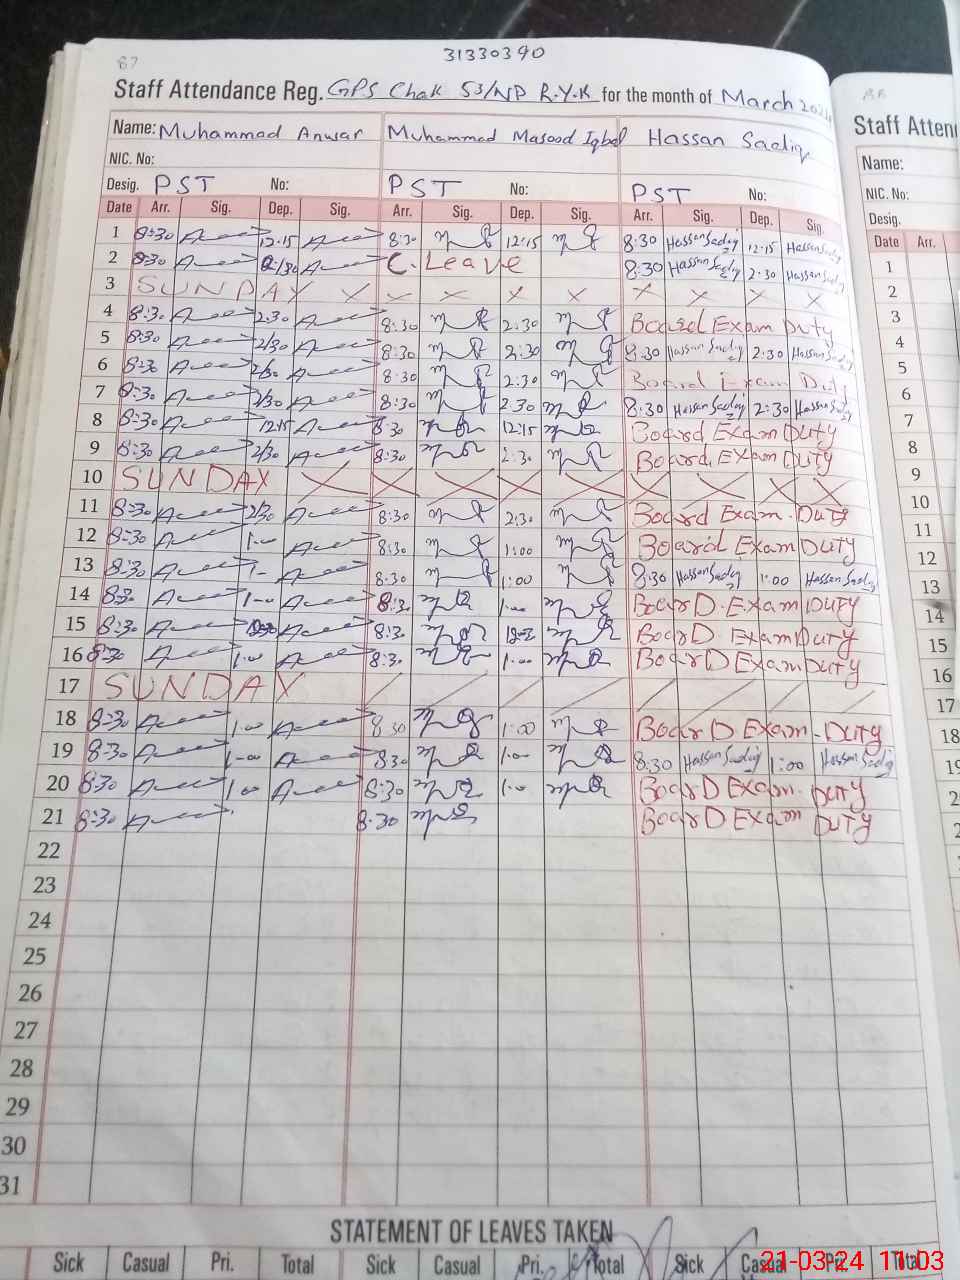 31330390
87
Staff Attendance Reg. GPS Chak 53/NP R.Y.K for the month of March 2024
88
Staff Atten
Name: Muhammad Anwar Muhammad Masood Iqbal Hassan Sadiq
Name:
NIC. No:
NIC. No:
Desig. PST No: PST No: PST No:
Desig.
Date Arr. Sig. Dep. Sig. Arr. Sig. Dep. Sig. Arr. Sig. Dep. Sig.
Date Arr.
1 8:30 12:15 8:30 12:15 8:30 Hassan Sadiq 12:15 Hassan Sadiq
2 8:30 2/30 C. Leave 8:30 Hassan Sadiq 2:30 Hassan Sadiq
3 SUNDAY X X X X X X X X X
4 8:30 2:30 8:30 2:30 Board Exam Duty
5 8:30 2/30 8:30 2:30 8:30 Hassan Sadiq 2:30 Hassan Sadiq
6 8:30 2/30 8:30 2:30 Board Exam Duty
7 8:30 2/30 8:30 2:30 8:30 Hassan Sadiq 2:30 Hassan Sadiq
8 8:30 12:15 8:30 12:15 Board Exam DUTY
9 8:30 2/30 8:30 2:30 Board. EXam DUTY
10 SUNDAY X X X X X X X X X
11 8:30 2/30 8:30 2:30 Board Exam. DUTY
12 8:30 1:00 8:30 1:00 Board Exam DUTY
13 8:30 1- 8:30 1:00 8:30 Hassan Sadiq 1:00 Hassan Sadiq
14 8:30 1-00 8:30 1:00 BoarD. Exam DUTY
15 8:30 8:30 BoarD Exam DUTY
16 8:30 1:00 8:30 1:00 BoarD Exam DUTY
17 SUNDAY
18 8:30 1:00 8:30 1:00 BoarD Exam - DUTY
19 8:30 1-00 8:30 1:00 8:30 Hassan Sadiq 1:00 Hassan Sadiq
20 8:30 1:00 8:30 1:0 BoarD Exam. DUTY
21 8:30 8:30 BoarD Exam DUTY
22
23
24
25
26
27
28
29
30
31
1
2
3
4
5
6
7
8
9
10
11
12
13
14
15
16
17
18
19
20
STATEMENT OF LEAVES TAKEN
Sick Casual Pri. Total Sick Casual Pri. Total Sick Casual Pri. Total
21-03-24 11:03